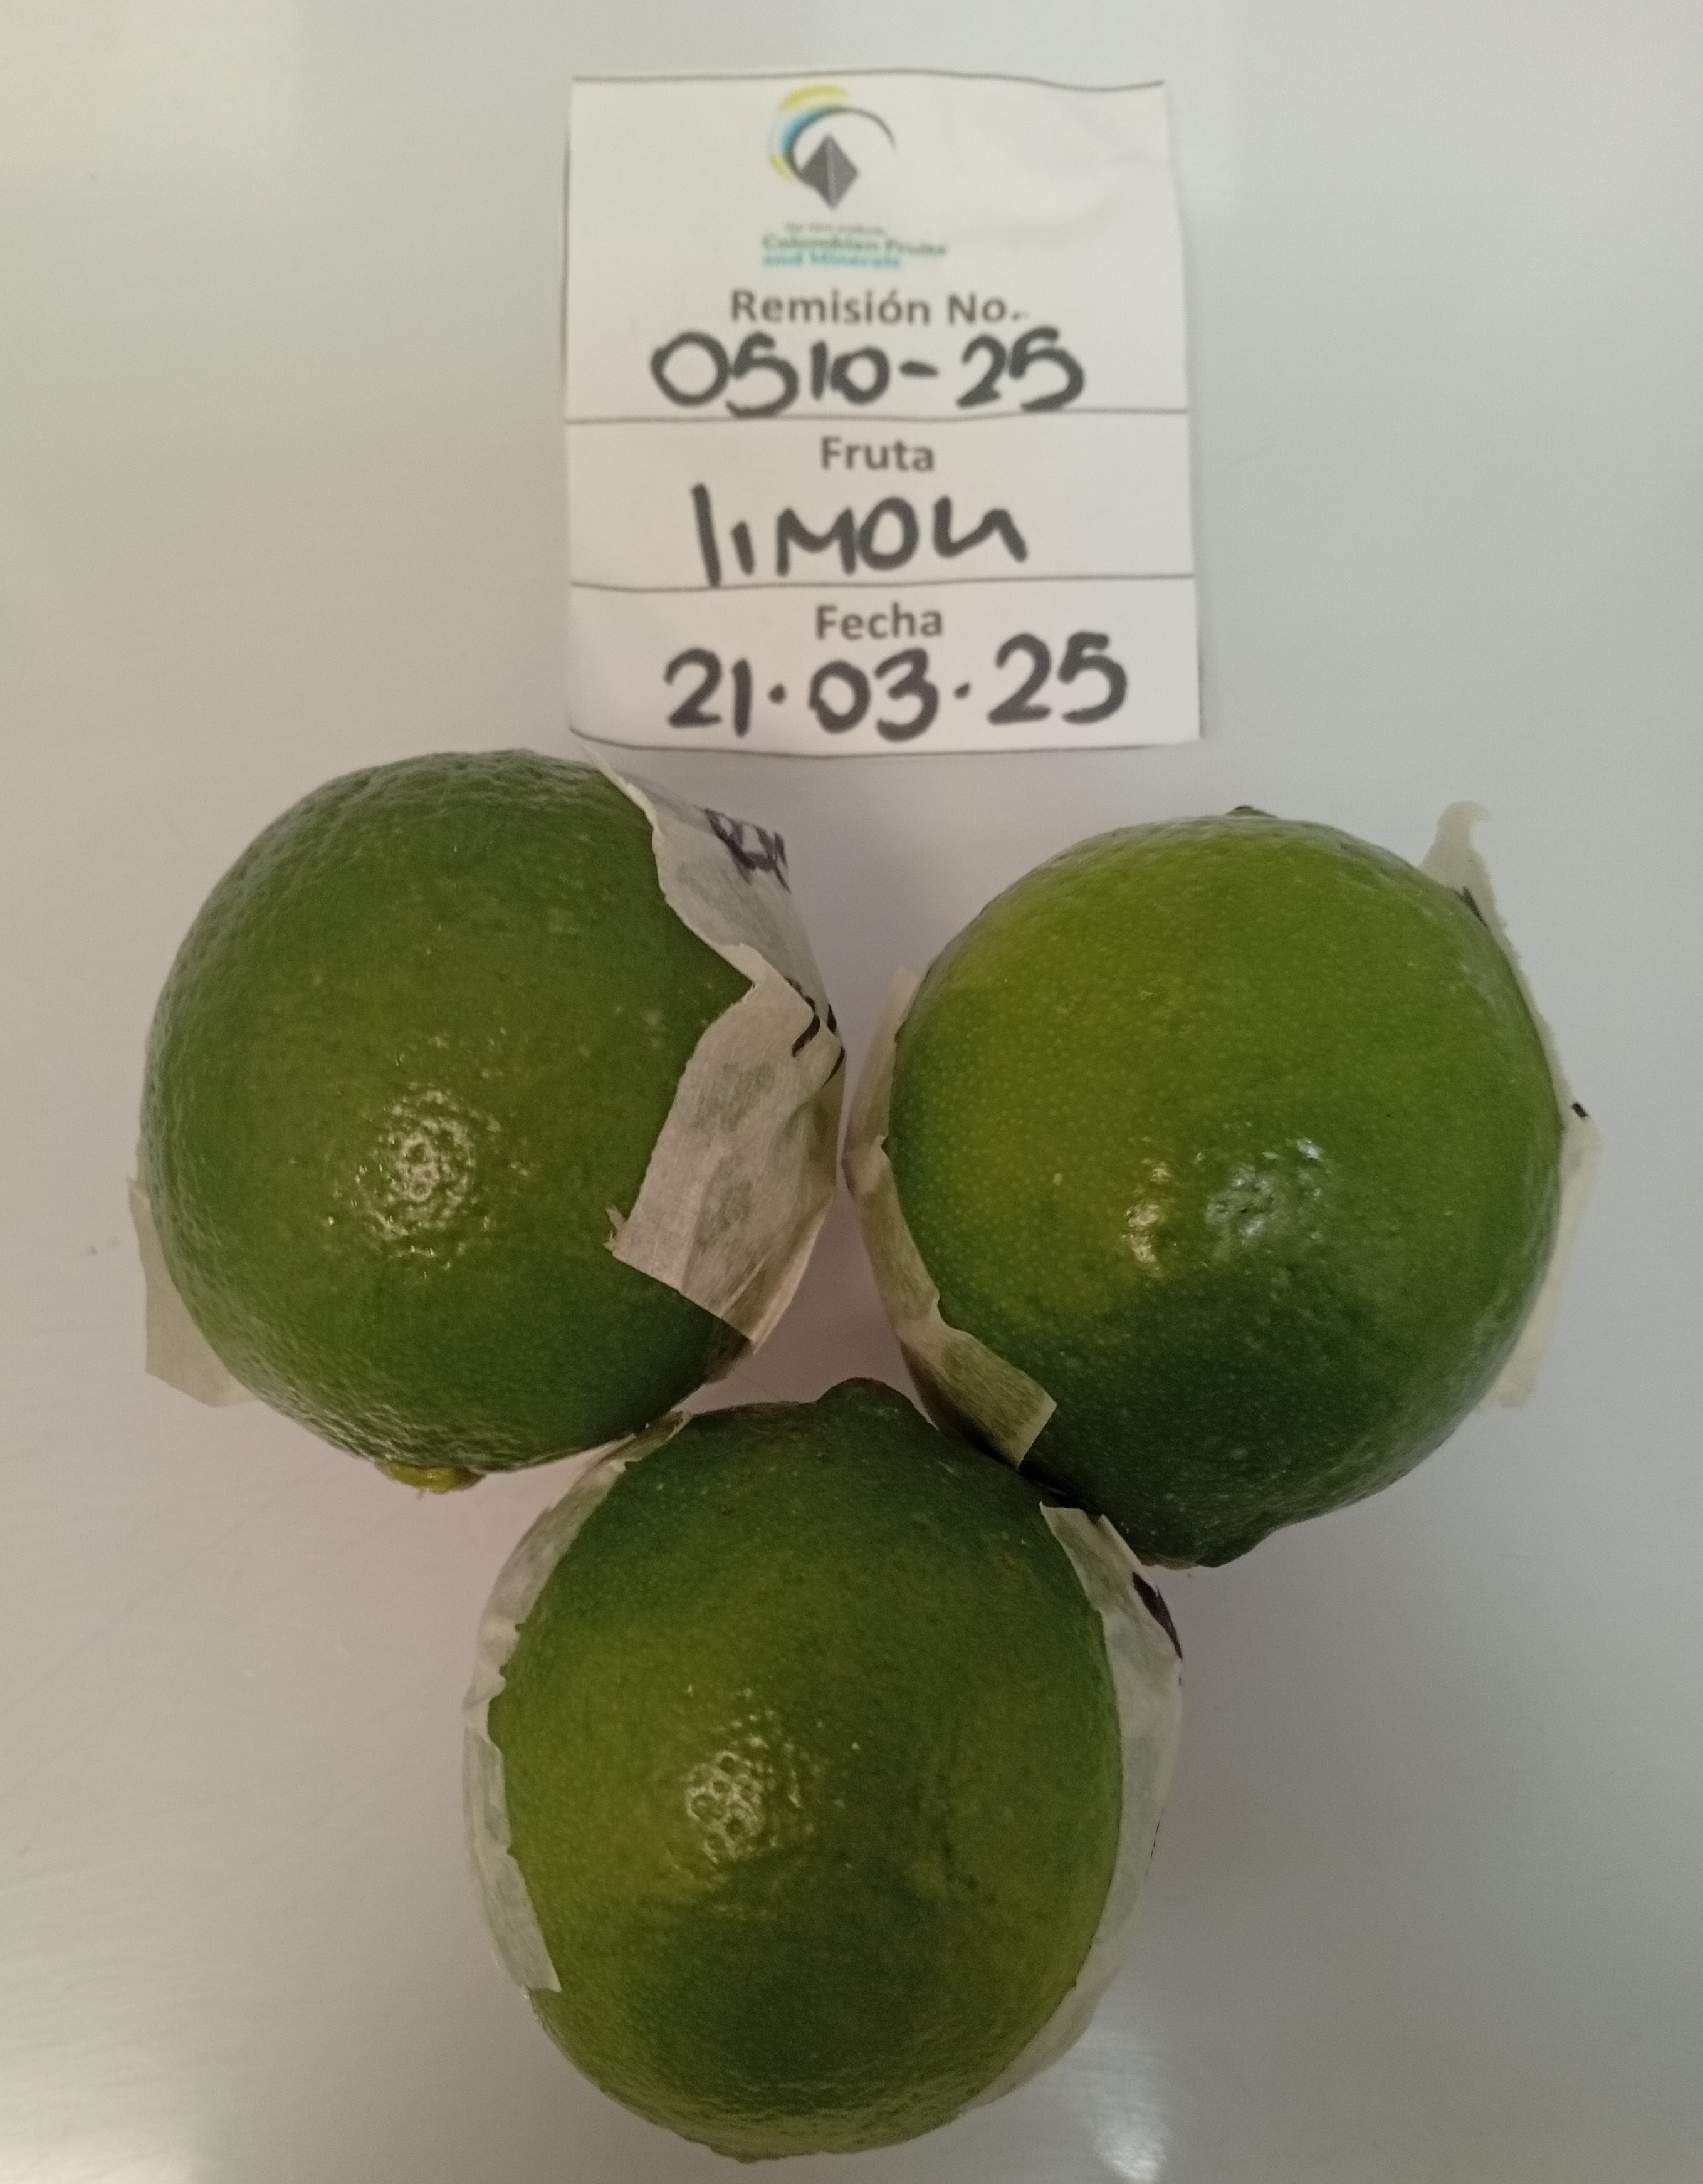 Colombian Fruits
and Minerals
Remisión No.
0510-25
Fruta
limon
Fecha
21.03.25